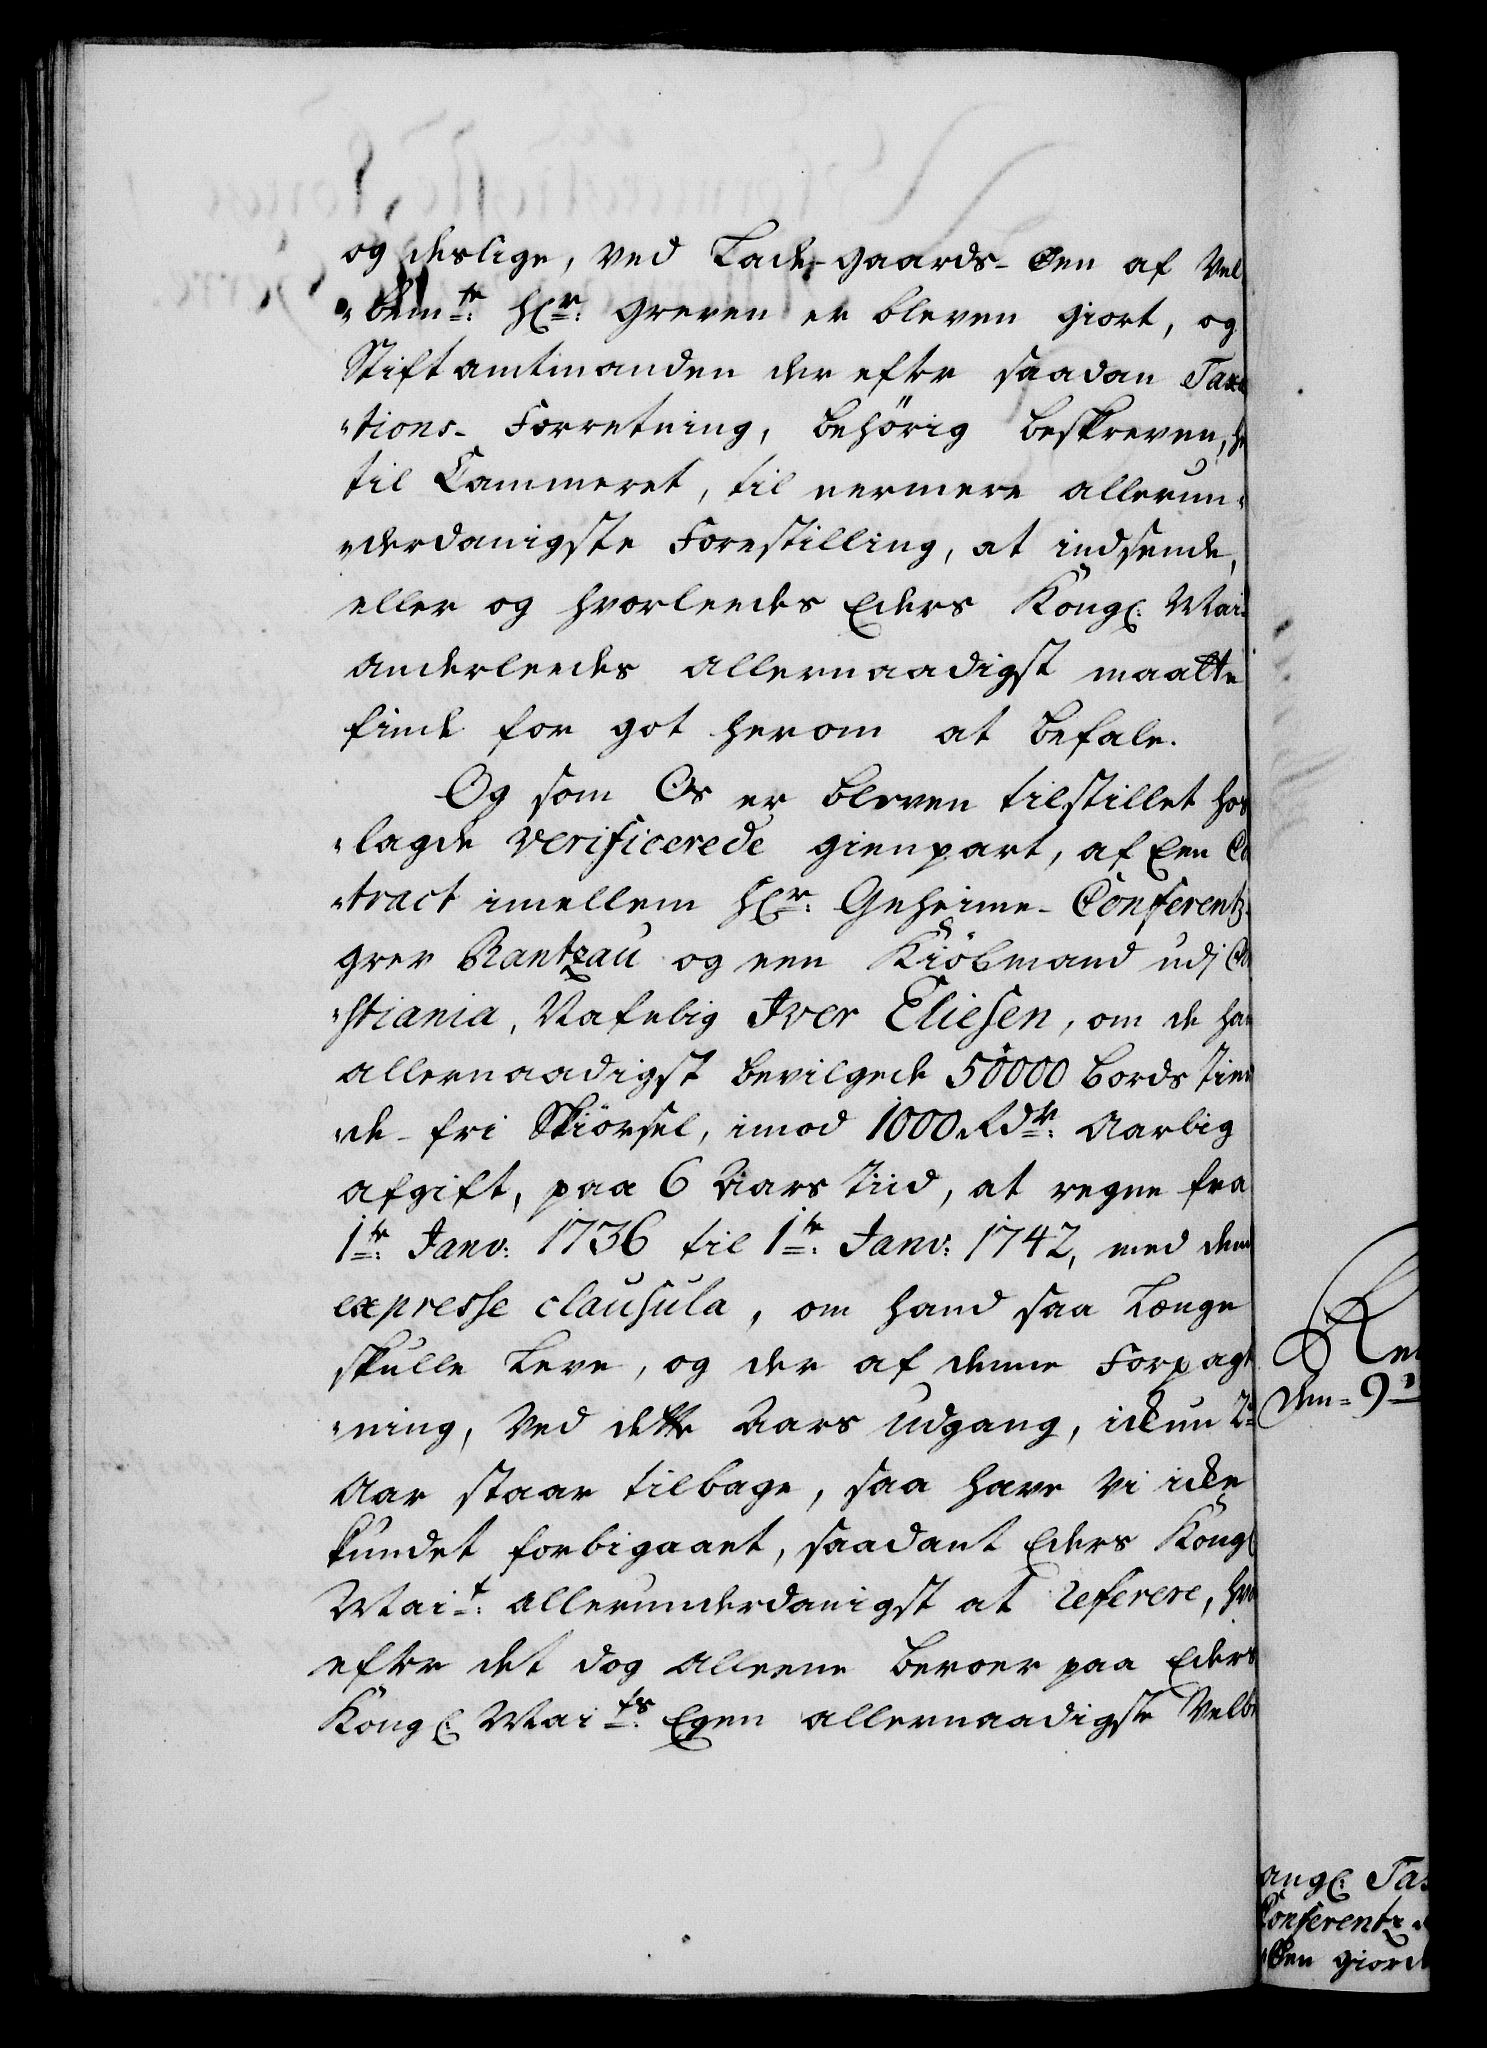 og deslige, ved Lade-gaards-Øen af Vel
-bemte: Hr: Greven er bleven giort, og
Stiftamtmanden der efter saadan Taxa
-tions-Forretning, behörig beskreven, he
til Cammeret, til nermere allerun-
-derdanigste Forestilling, at indsende,
eller og hvorleedes Eders Kongl: Mai
anderleedes allernaadigst maatte
finde for got herom at befale.
Og som Os er bleven tilstillet hos
-lagde verificerede gienpart, af Een Co
-tract imellem Hr: Geheime-Conferentz-
grev Rantzau og een Kiöbmand udj Chri
-stiania, Nafnlig Iver Eliesen, om de ham
allernaadigst bevilgede 50000 bords Tien
-de-fri Skiörsel, imod 1000 Rdr: Aarlig
afgift, paa 6 Aars Tiid, at regne fra
1te: Janv: 1736 til 1te: Janv: 1742, med den
expresse clausula, om hand saa Længe
skulle Leve, og der af denne Forpagt
-ning, Ved dette Aars udgang, ickun 2de
Aar staar tilbage, saa have Vi icke
kundet forbigaaet, saadant Eders Kongl
Mait: allerunderdanigst at referere, hvor
efter det dog alleene beroer paa Eders
Kongl: Maits: Egen allernaadigste Velbe
den 9
angl: Tax
Conferentz
Øen giord